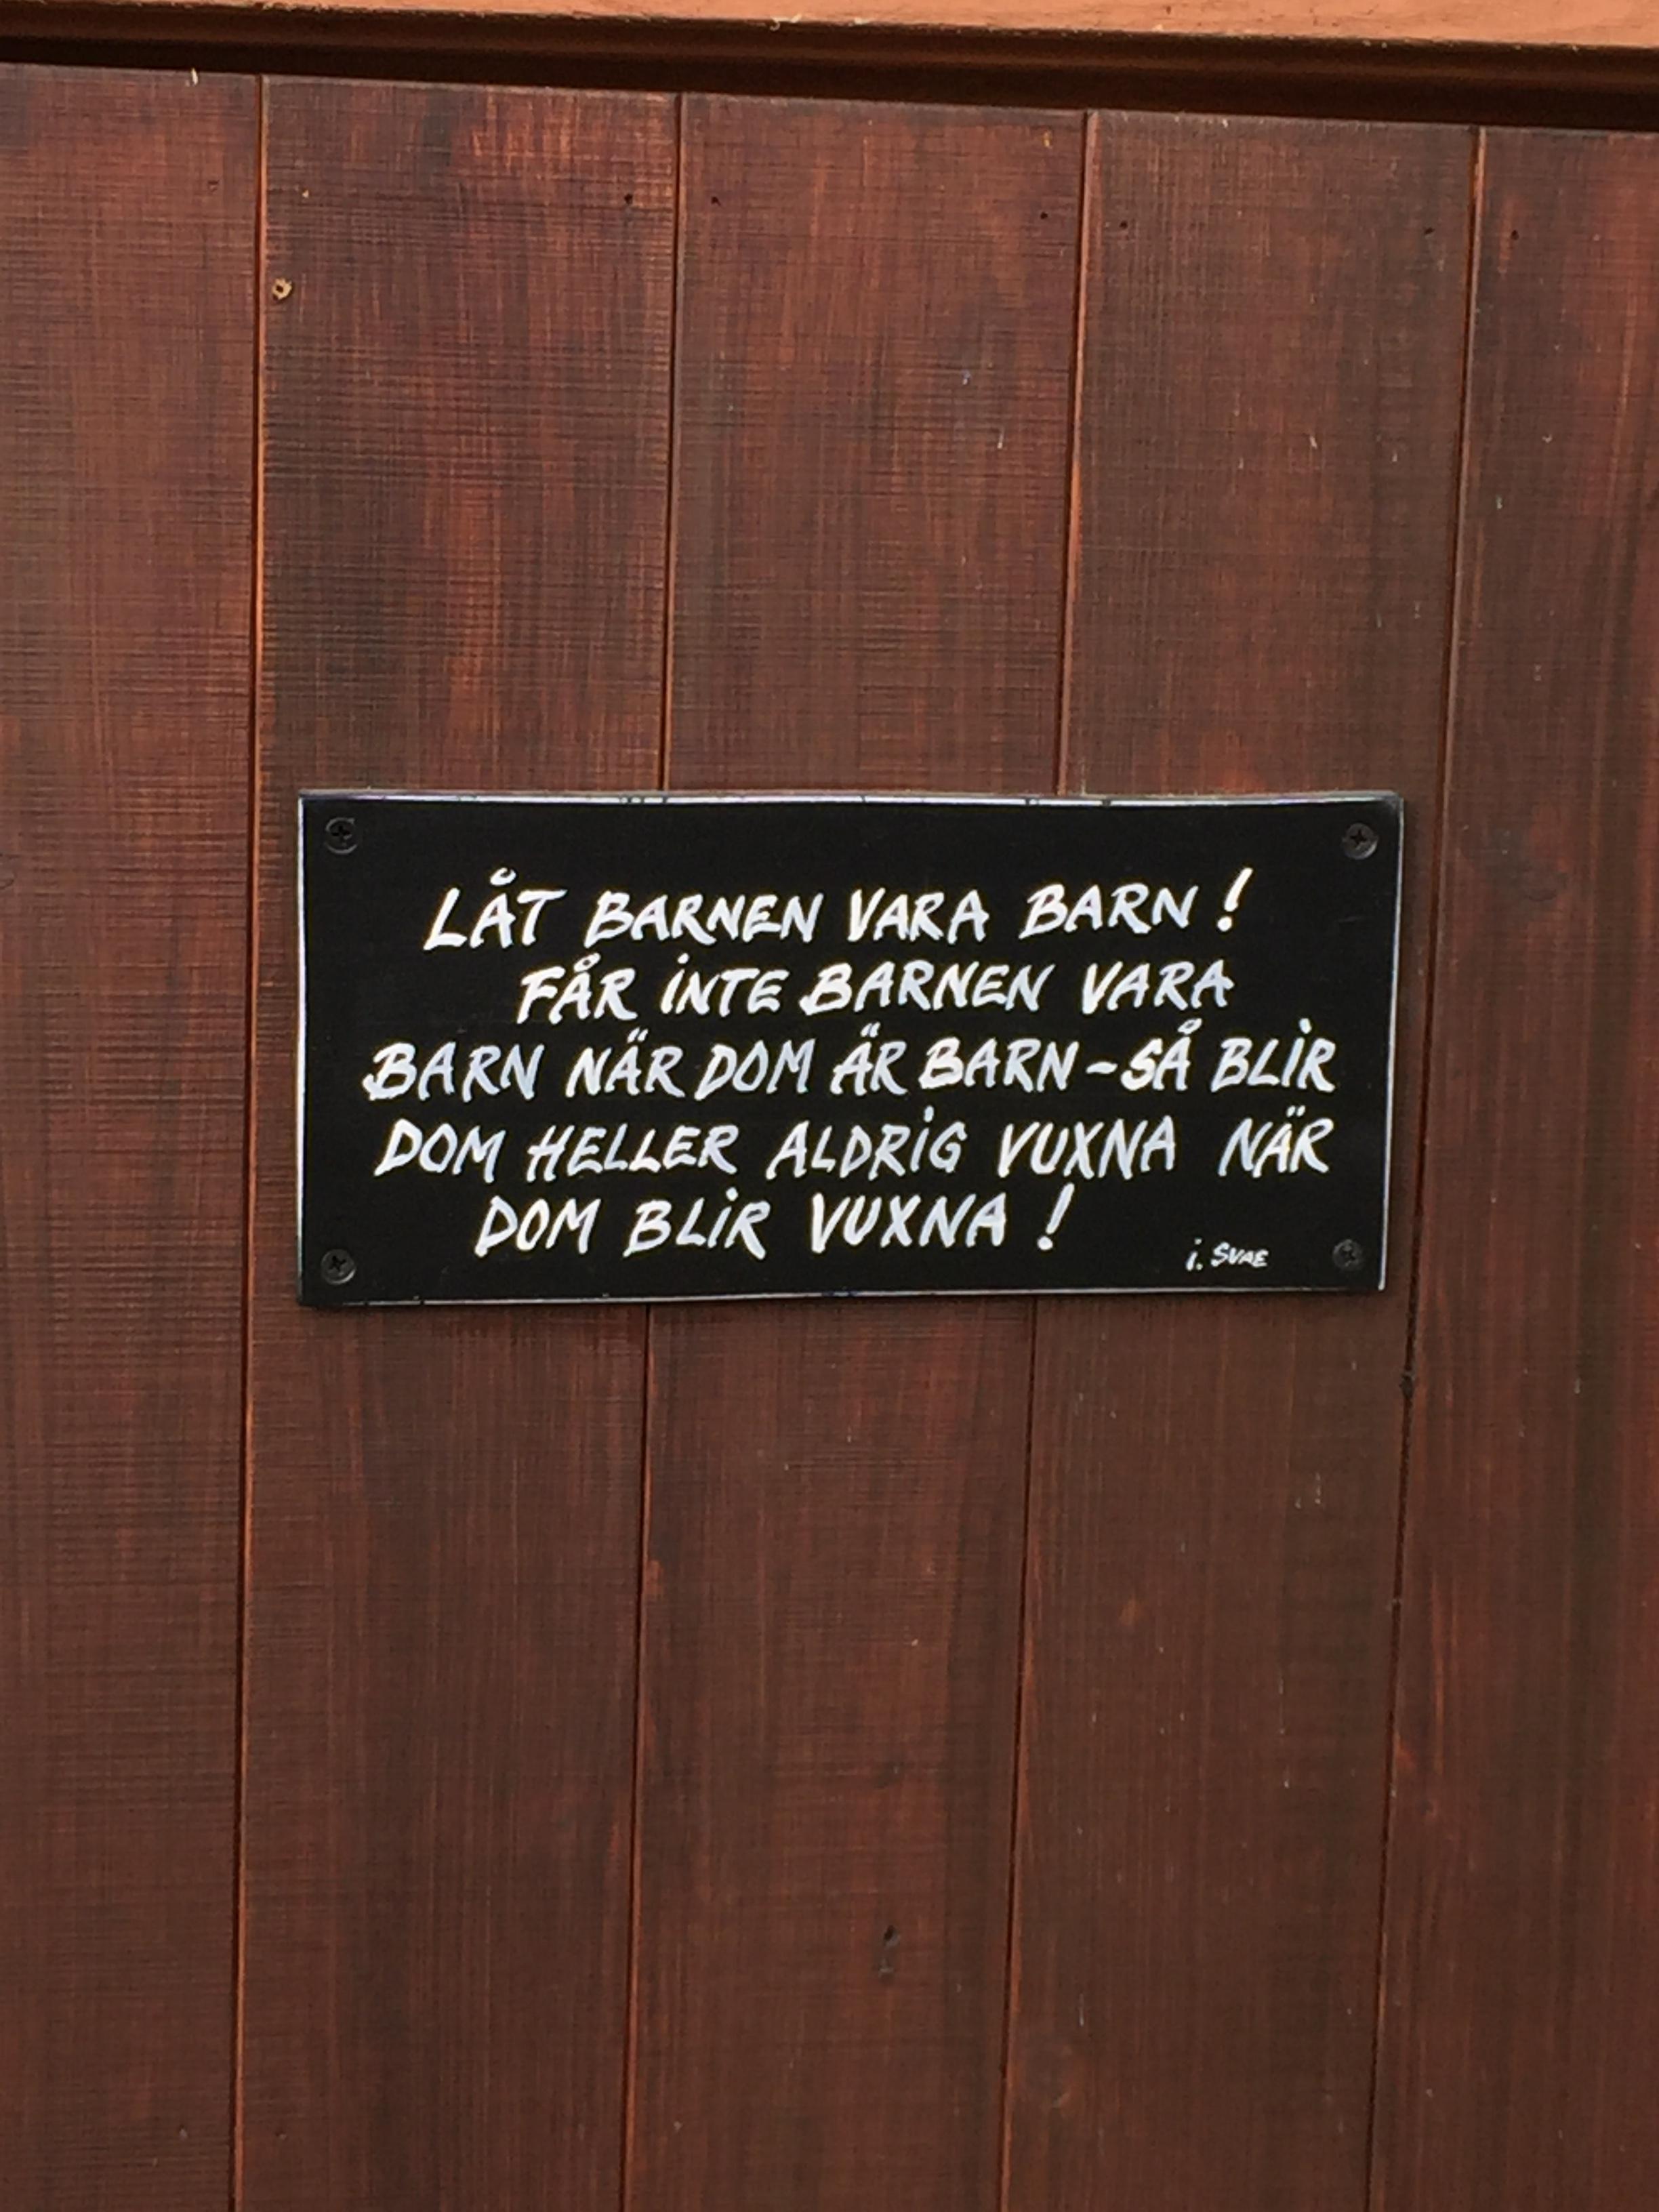 LÅT BARNEN VARA BARN!
FÅR INTE BARNEN VARA
BARN NÄR DOM ÄR BARN-SÅ BLIR
DOM HELLER ALDRIG VUXNA NÄR
DOM BLIR VUXNA!
i. SVAE